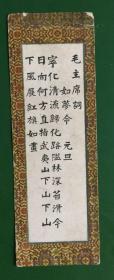 毛主席詞
如夢令 元旦
寧化清流歸化路隘林深苔滑今
日向何方直指武夷山下山下山
下風展紅旗如畫